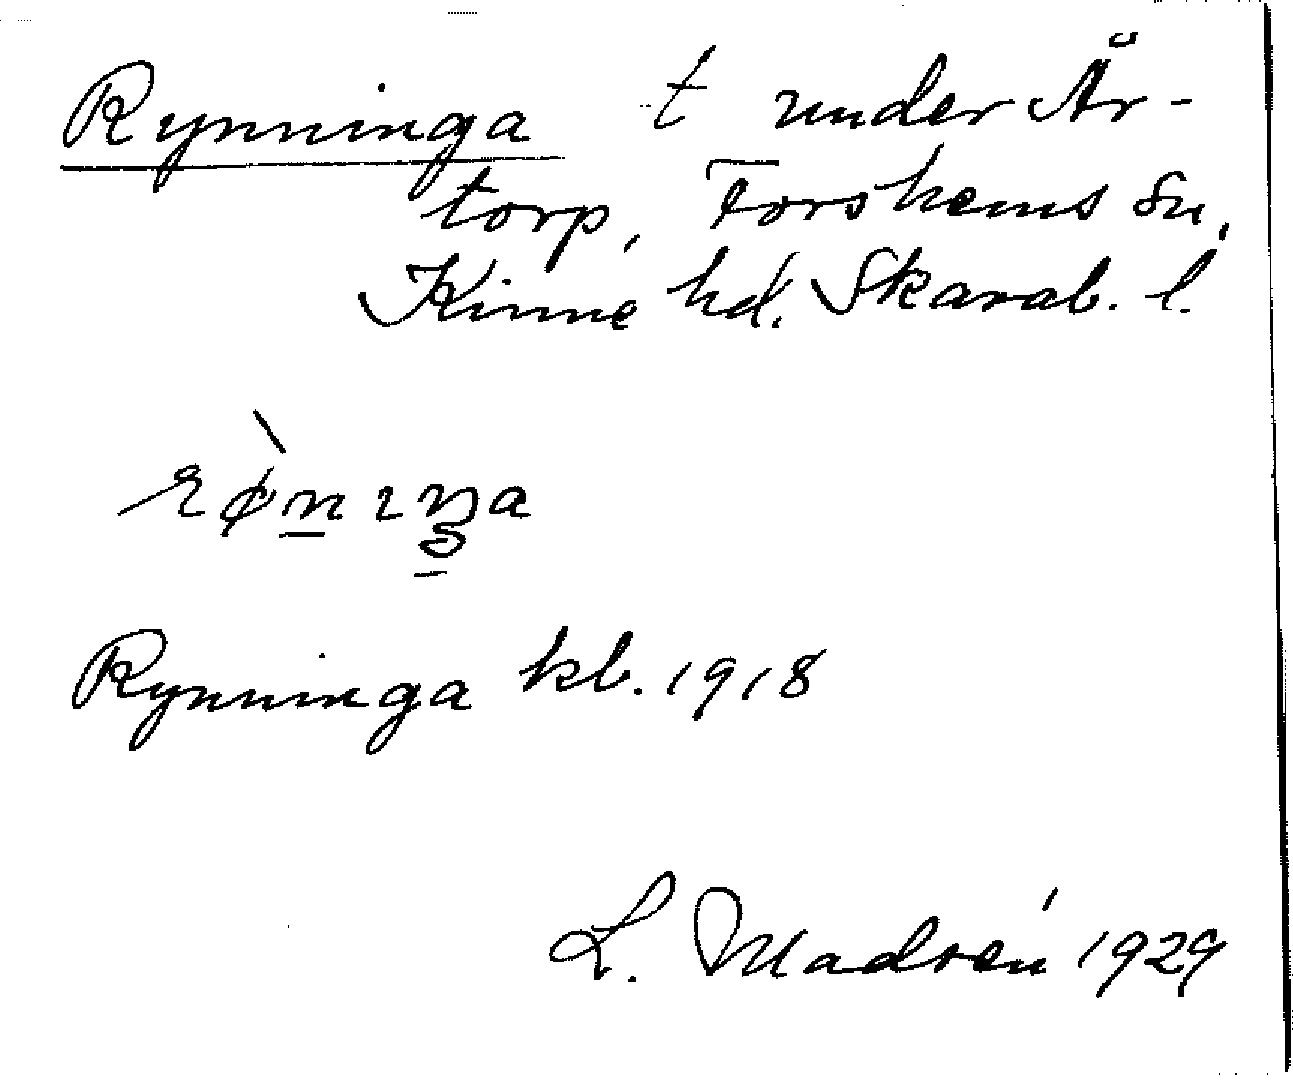 Rynninga t under År-
torp, Forshems sn,
Kinne hd. Skarab. l.
Rynninga kb. 1918
L. Madsén 1929